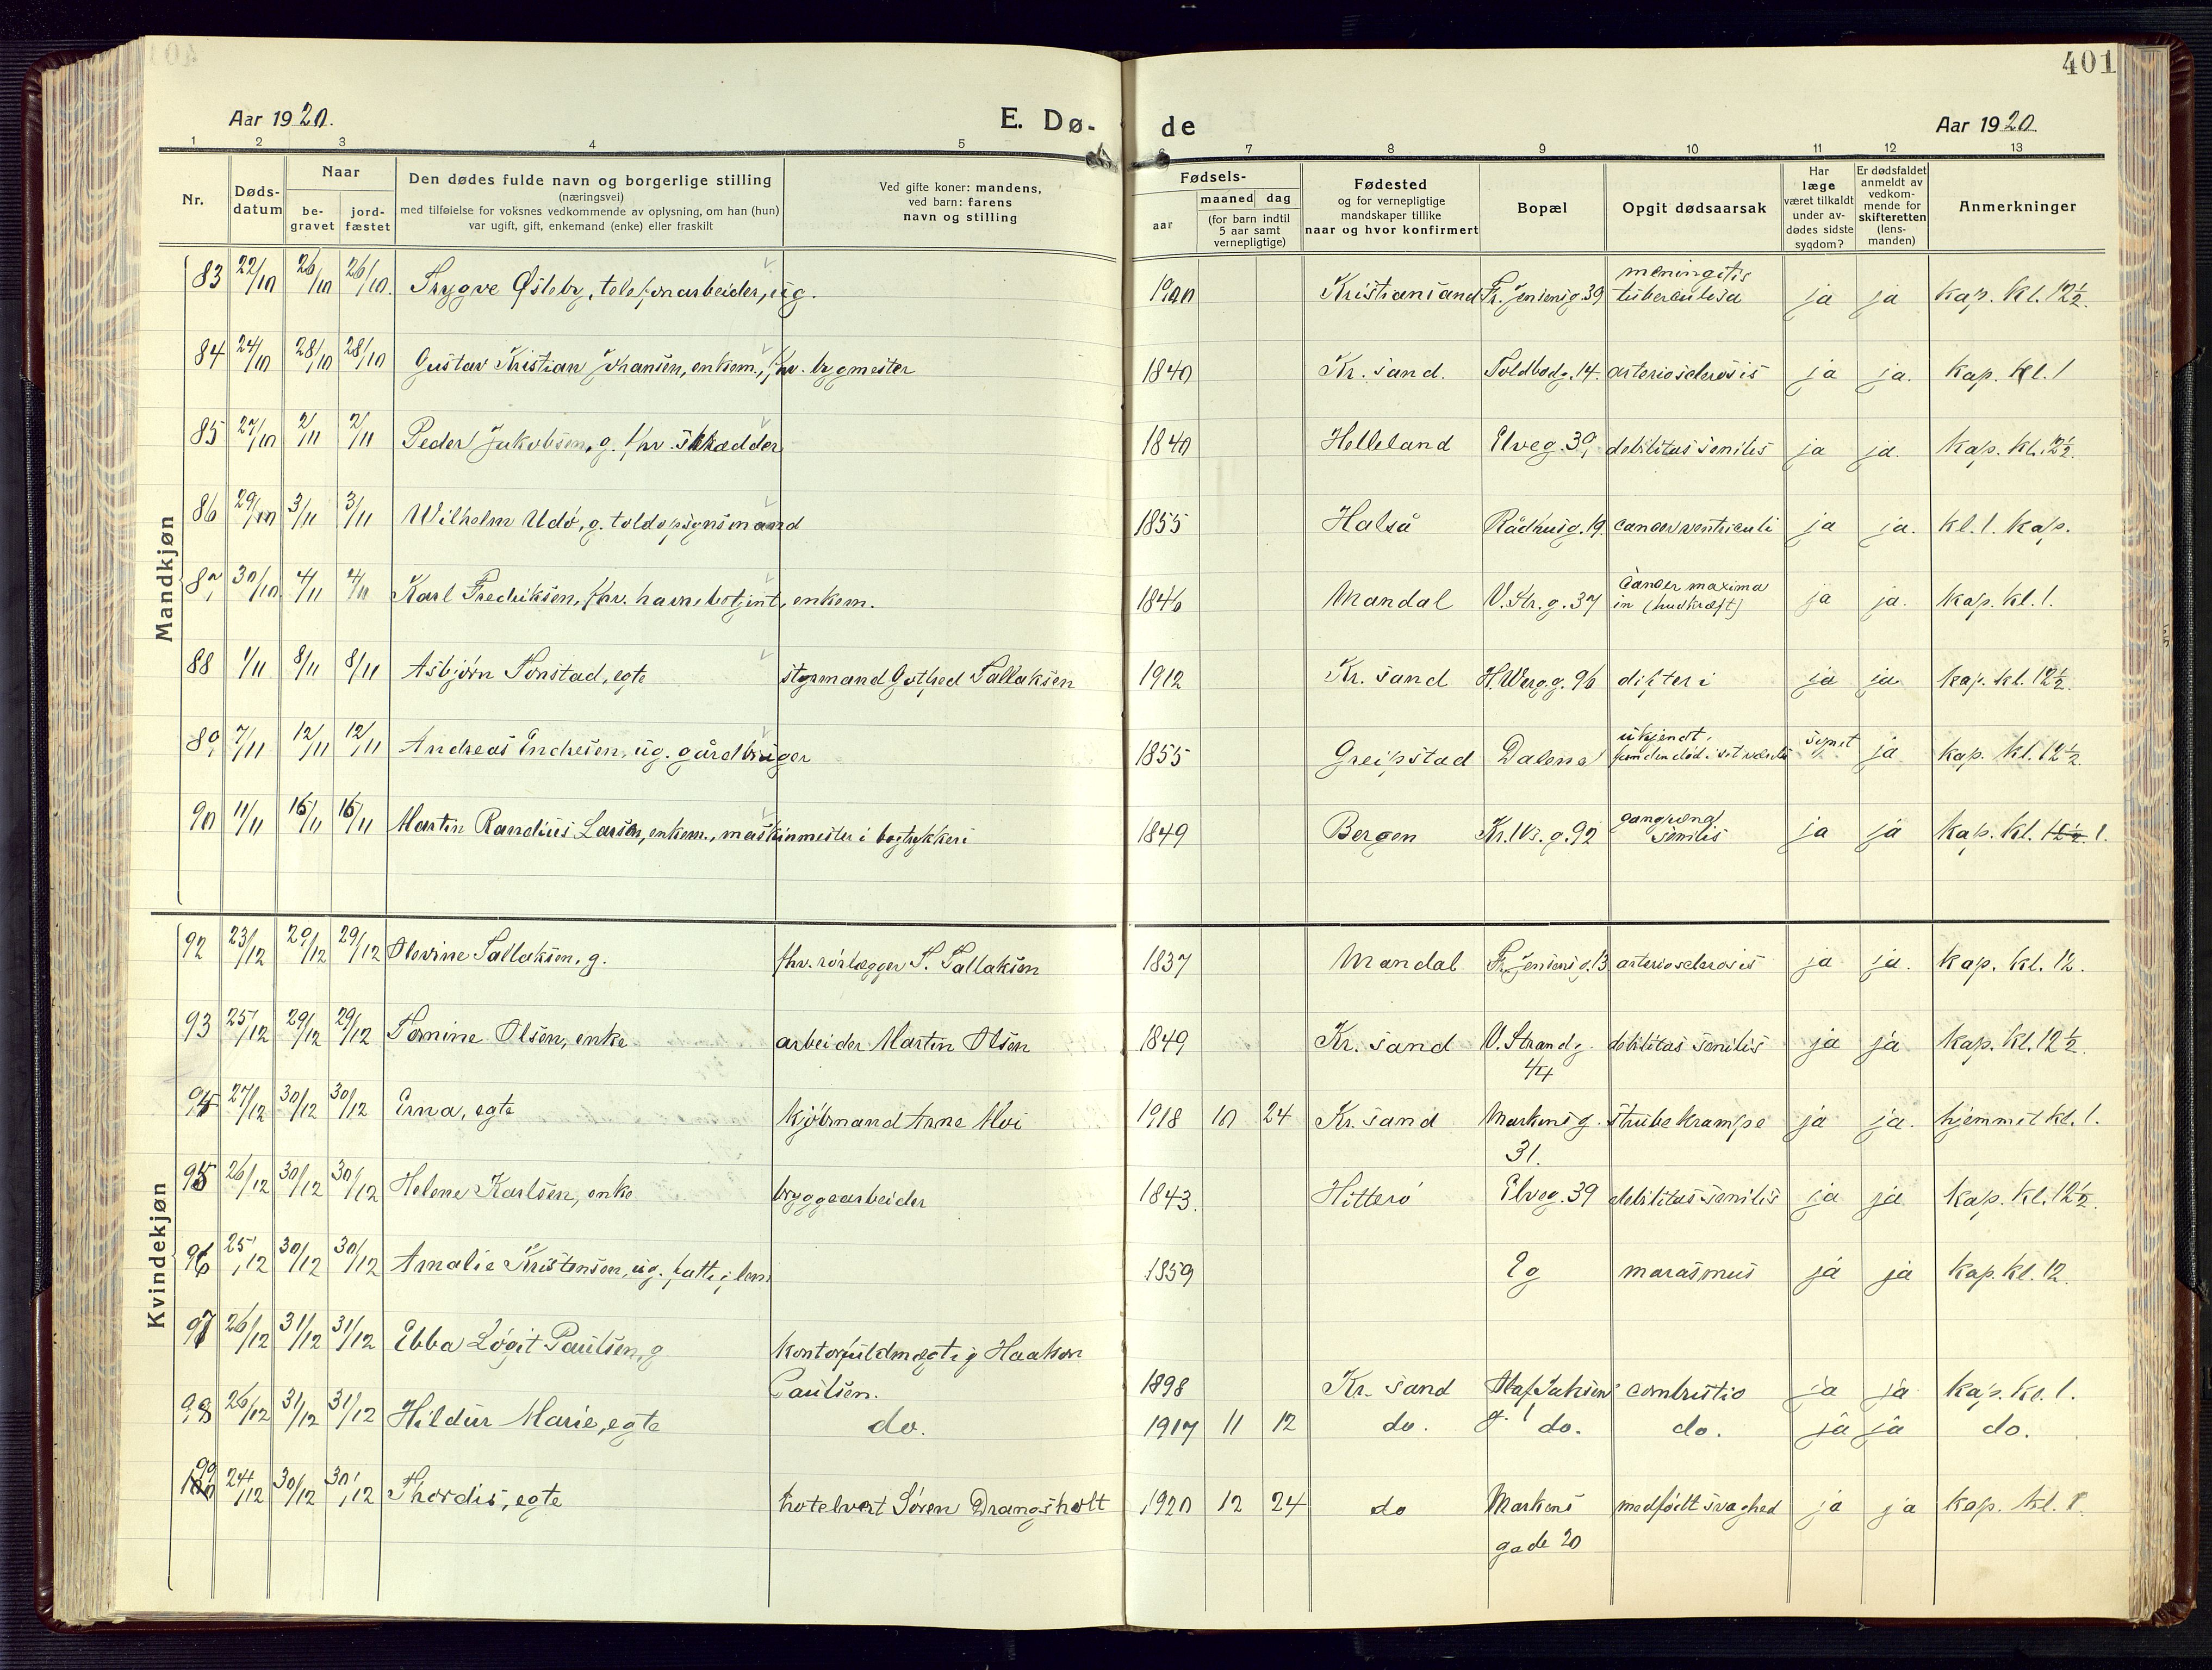 401
Aar 1920.
E. Dø-
de
Aar 1920
1 2 3 4 5 6 7 8 9 10 11 12 13
Nr.
Døds-
datum
Naar
be-
gravet
jord-
fæstet
Den dødes fulde navn og borgerlige stilling
(næringsvei)
med tilføielse for voksnes vedkommende av oplysning, om han (hun)
var ugift, gift, enkemand (enke) eller fraskilt
Ved gifte koner: mandens,
ved barn: farens
navn og stilling
Fødsels-
aar
maaned dag
(for barn indtil
5 aar samt
vernepligtige)
Fødested
og for vernepligtige
mandskaper tillike
naar og hvor konfirmert
Bopæl
Opgit dødsaarsak
Har
læge
været tilkaldt
under av-
dødes sidste
sygdom?
Er dødsfaldet
anmeldt av
vedkom-
mende for
skifteretten
(lens-
manden)
Anmerkninger
Mandkjøn
83 22/10 26/10 26/10. Trygve Østeby, telefonarbeider, ug. 1900 Kristiansand Fr. Jensensg. 39 meningitis tuberculosa ja ja kap. kl. 12½.
84 24/10 28/10 28/10 Gustav Kristian Johansen, enkem., fhv. bygmester 1840 Kr. sand. Toldbodg. 14. arteriosclerosis ja ja. kap. kl. 1
85 27/10 2/11 2/11 Peder Jakobsen, g. fhv. skrædder 1840 Helleland Elveg. 39 debilitas senilis ja ja. kap. kl. 12½.
86 29/10 3/11 3/11 Wilhelm Udö, g. toldopsynsmand 1855 Halså Rådhusg. 19. cancer ventriculi ja ja. kl. 1. kap.
87 30/10 4/11 4/11 Karl Fredriksen, fhv. havnebetjent, enkem. 1846 Mandal V. Str. g. 37 cancer maxima in (hudkræft) ja ja. kap. kl. 1.
88 1/11 8/11 8/11 Asbjørn Tonstad, egte styrmand Gotfred Tallaksen 1912 Kr. sand H. Werg. g. 96 difteri ja ja kap. kl. 12½.
89 7/11 12/11 12/11 Andreas Endresen, ug. gårdbruger 1855 Greipstad Dalene ukjendt, funden død i sit værelse synet ja kap. kl. 12½.
90 11/11 16/11 16/11 Martin Randius Larsen, enkem., maskinmester i bogtrykkeri 1849 Bergen Kr. IVs. g. 92 gangræna senilis ja ja kap. kl. 12½. 1.
Kvindekjøn
92 23/12 29/12 29/12 Olevine Tallaksen, g. fhv. rørlægger T. Tallaksen 1837 Mandal Fr. Jensensg. 13 arteriosclerosis ja ja. kap. kl. 12.
93 25/12 29/12 29/12 Tomine Olsen, enke arbeider Martin Olsen 1849 Kr. sand V. Strandg. 44 debilitas senilis ja ja kap. kl. 12½.
94 27/12 30/12 30/12 Erna, egte kjøbmand Arne Moi 1918 10 24 Kr. sand Markensg. 31. strubekrampe ja ja. hjemmet kl. 1.
95 26/12 30/12 30/12 Helene Karlsen, enke bryggearbeider 1843. Hitterö Elveg. 39 debilitas senilis ja ja kap. kl. 12½.
96 25/12 30/12 30/12 Amalie Kristensen, ug. fattiglem 1859 Eg marasmus ja ja kap. kl. 12.
97 26/12 31/12 31/12 Ebba Logit Paulsen, g kontorfuldmægtig Haakon
Paulsen. 1898 Kr. sand Olaf Isaksens g. 1 combustio ja ja kap. kl. 1.
98 26/12 31/12 31/12 Hildur Marie, egte do. 1917 11 12 do. do. do. ja ja do.
99 24/12 30/12 30/12 Thordis, egte hotelvert Sören Drangsholt 1920 12 24 do Markens gade 20 medfødt svaghed ja ja kap. kl. 1.